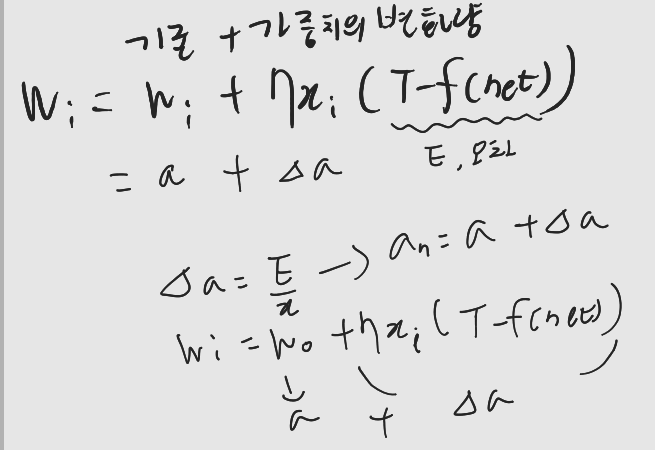 기존 + 가중치의 변화량
Wi = wi + ηxi (T-f(net))
= a + Δa E, 오차
Δa = E/x → an = a + Δa
wi = wo + ηxi (T-f(net))
↓
a + Δa